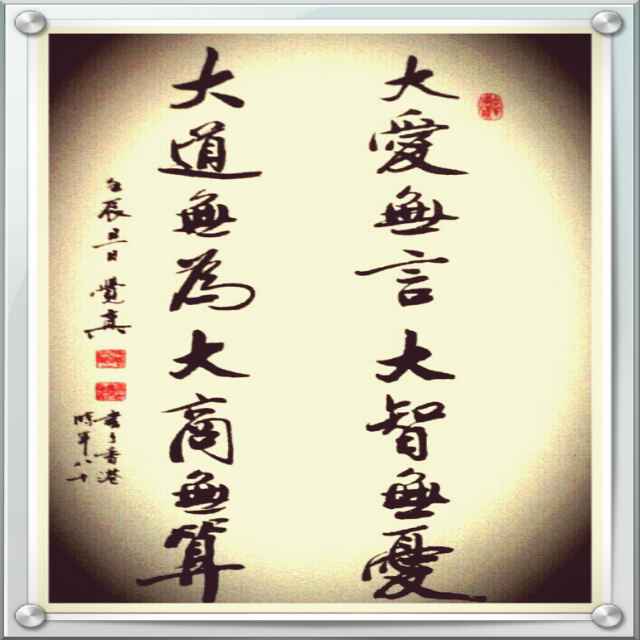 大愛無言大智無憂
大道無為大商無算
壬辰旦日 覺真
書于香港
時年八十